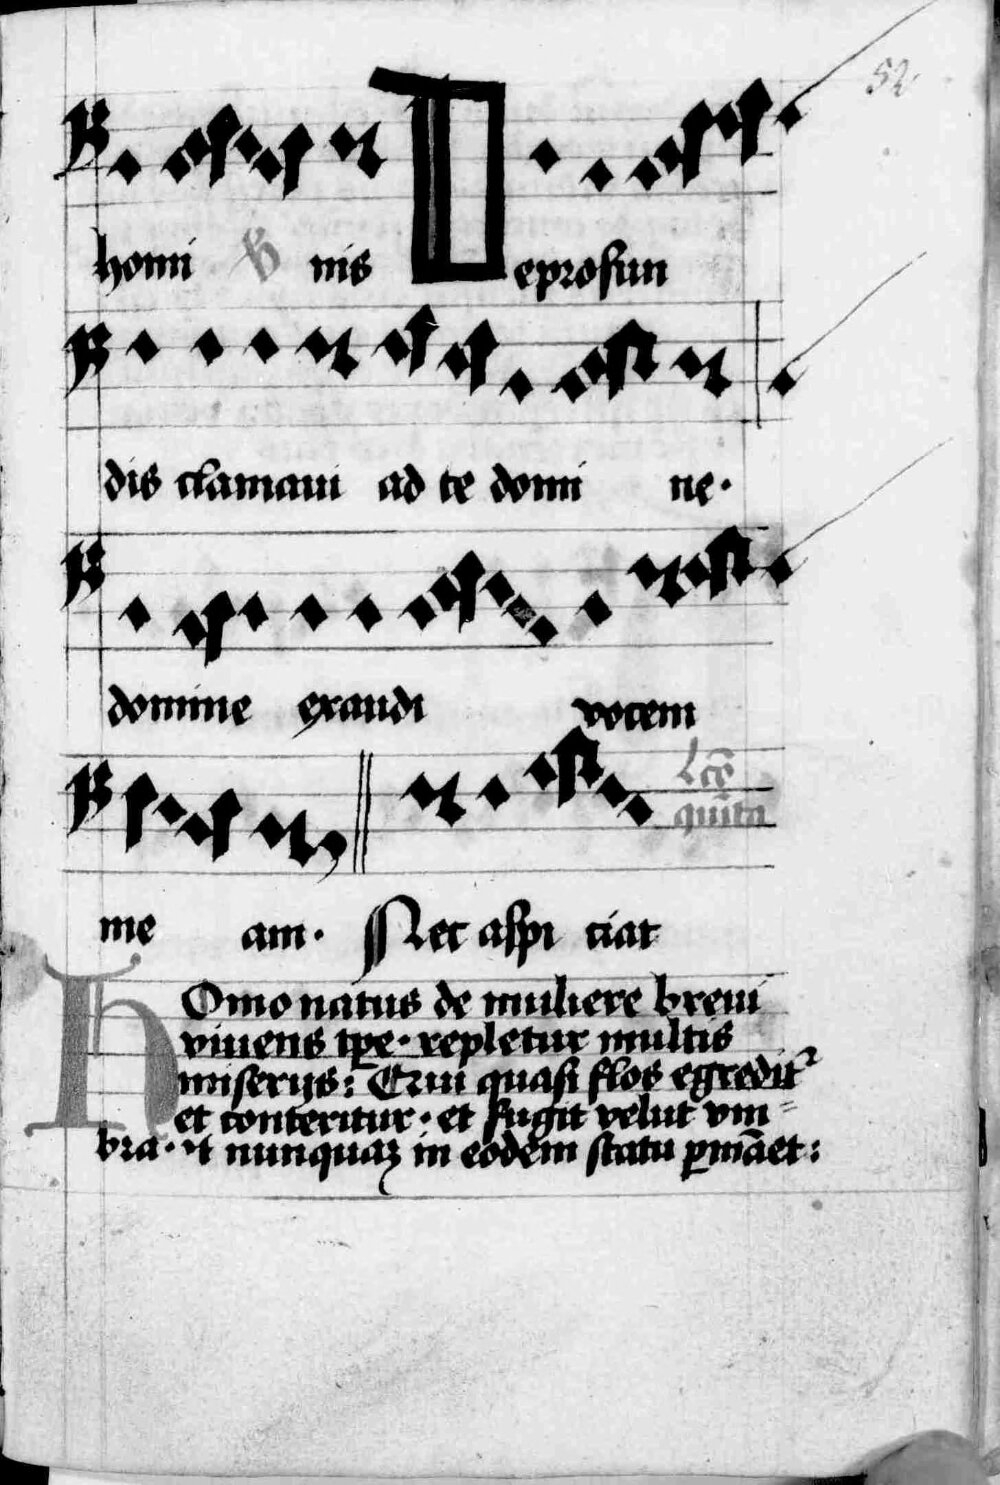 52
homi V nis Deprofun
dis clamaui ad te domi ne·
domine exaudi vocem
lcē
quīta
me am· Nec aspi ciat
HOmo natus de muliere breui
viuens tp̄e· repletur multis
miserijs: Qui quasi flos egredit᷑
et conteritur· et fugit velut vm=
bra· et nunquaꝫ in eodem statu ꝑmāet: